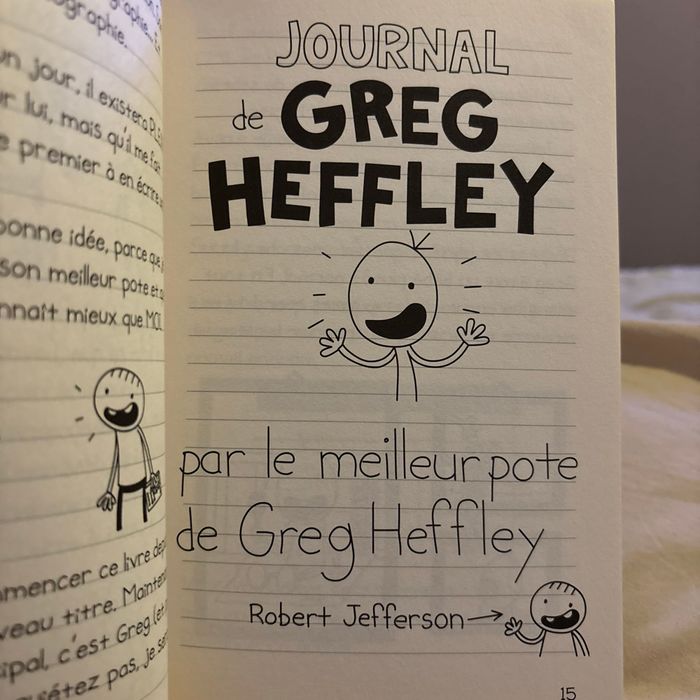 ographie.
un jour, il existera
lui, mais qu'il me
premier à en écrire
bonne idée, parce que
son meilleur pote et
nnaît mieux que MOI.
mencer ce livre
veau titre.
cipal, c'est Greg
pas, je
JOURNAL
de GREG
HEFFLEY
par le meilleur pote
de Greg Heffley
Robert Jefferson
15